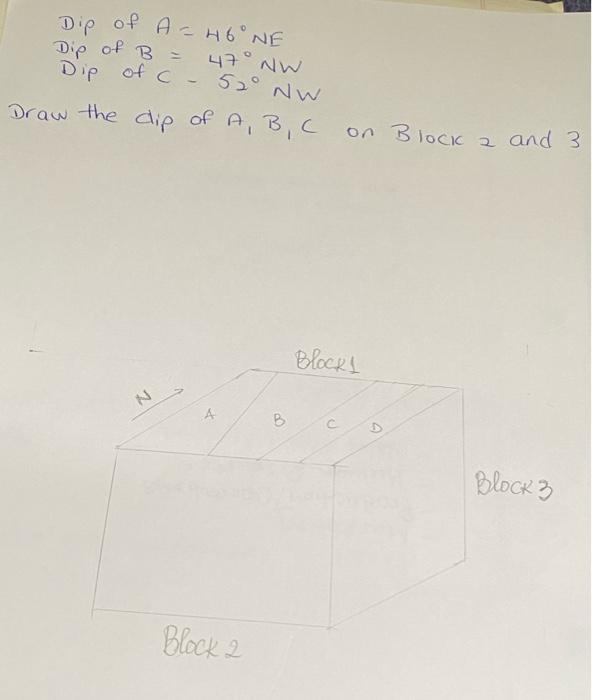 Dip of A = 46° NE
Dip of B = 47° NW
Dip of C - 52° NW
Draw the dip of A, B, C on Block 2 and 3
Block 1
N
A
B
C
D
Block 3
Block 2